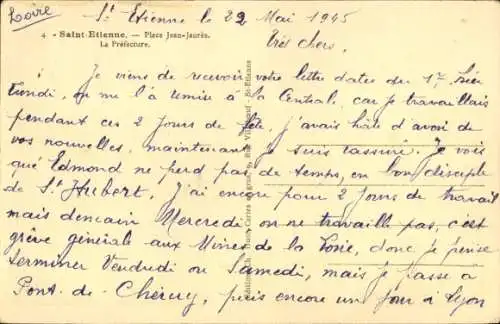 Loire
St Etienne le 22 Mai 1945
4 - Saint-Etienne. — Place Jean-Jaurès.
La Préfecture.
Très chers,
Je viens de recevoir votre lettre datée du 1er, hier
lundi, on me l'a remise à la Centrale, car je travaillais
pendant ces 2 jours de fête, j'avais hâte d'avoir de
vos nouvelles, maintenant je suis rassuré. Je vois
qué Edmond ne perd pas de temps, en bon disciple
de St Hubert, j'ai encore pour 2 jours de travail
mais demain Mercredi on ne travaille pas, c'est
grève générale aux Mines de la Loire, donc je pense
terminer Vendredi ou Samedi, mais je passe à
Pont-de-Chéruy, puis encore un jour à Lyon